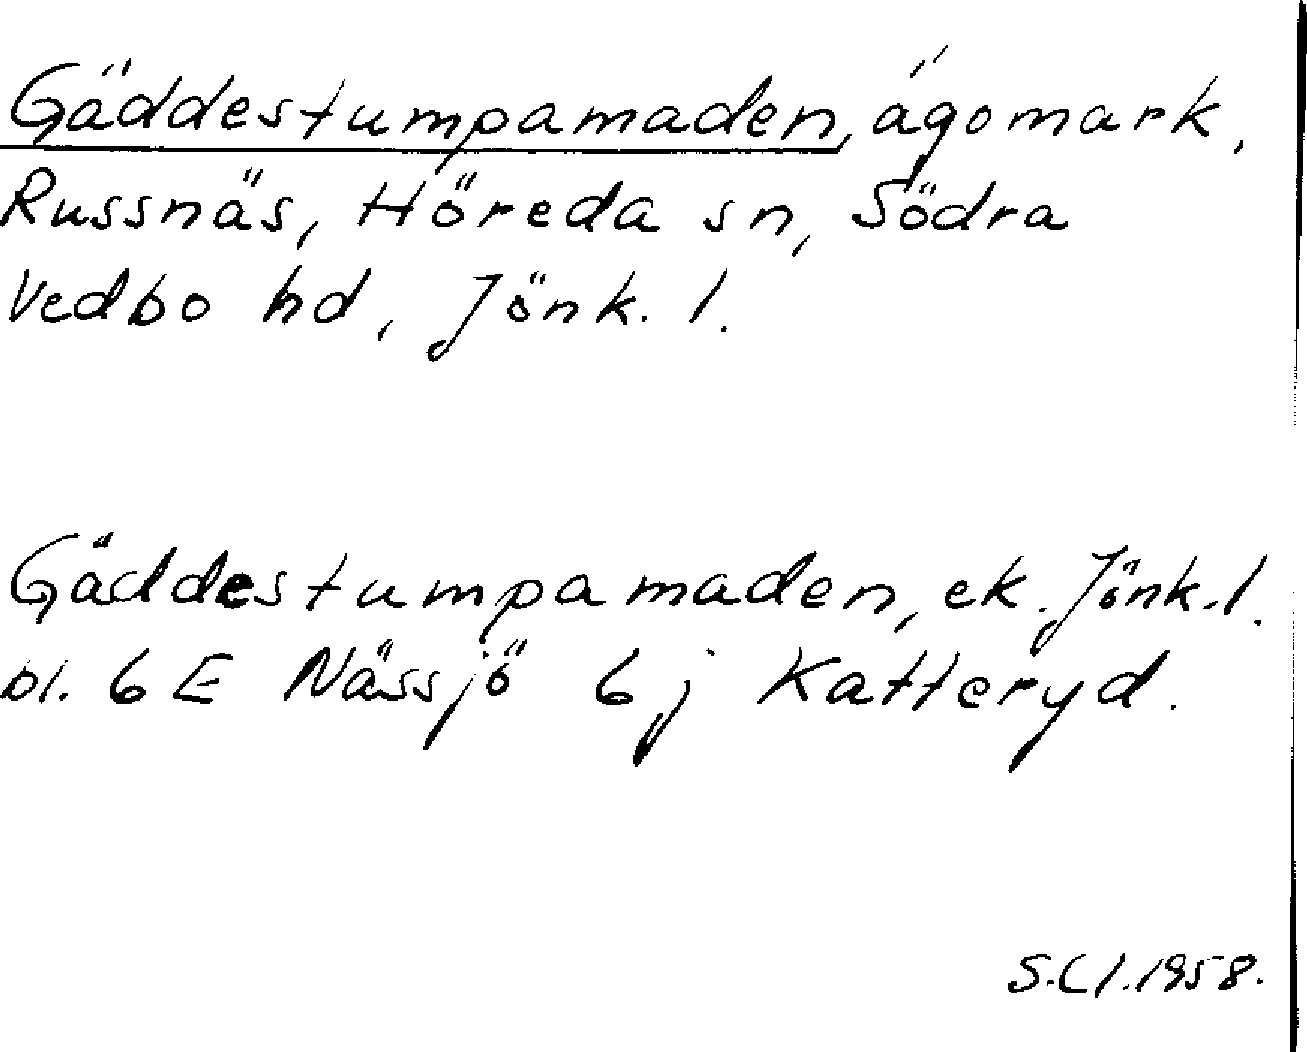 Gäddestumpamaden, ägomark,
Russnäs, Höreda sn, Södra
Vedbo hd, Jönk. l.
Gäddestumpamaden, ek. Jönk. l.
bl. 6 E Nässjö 6 j Katteryd.
S.Cl. 1958.